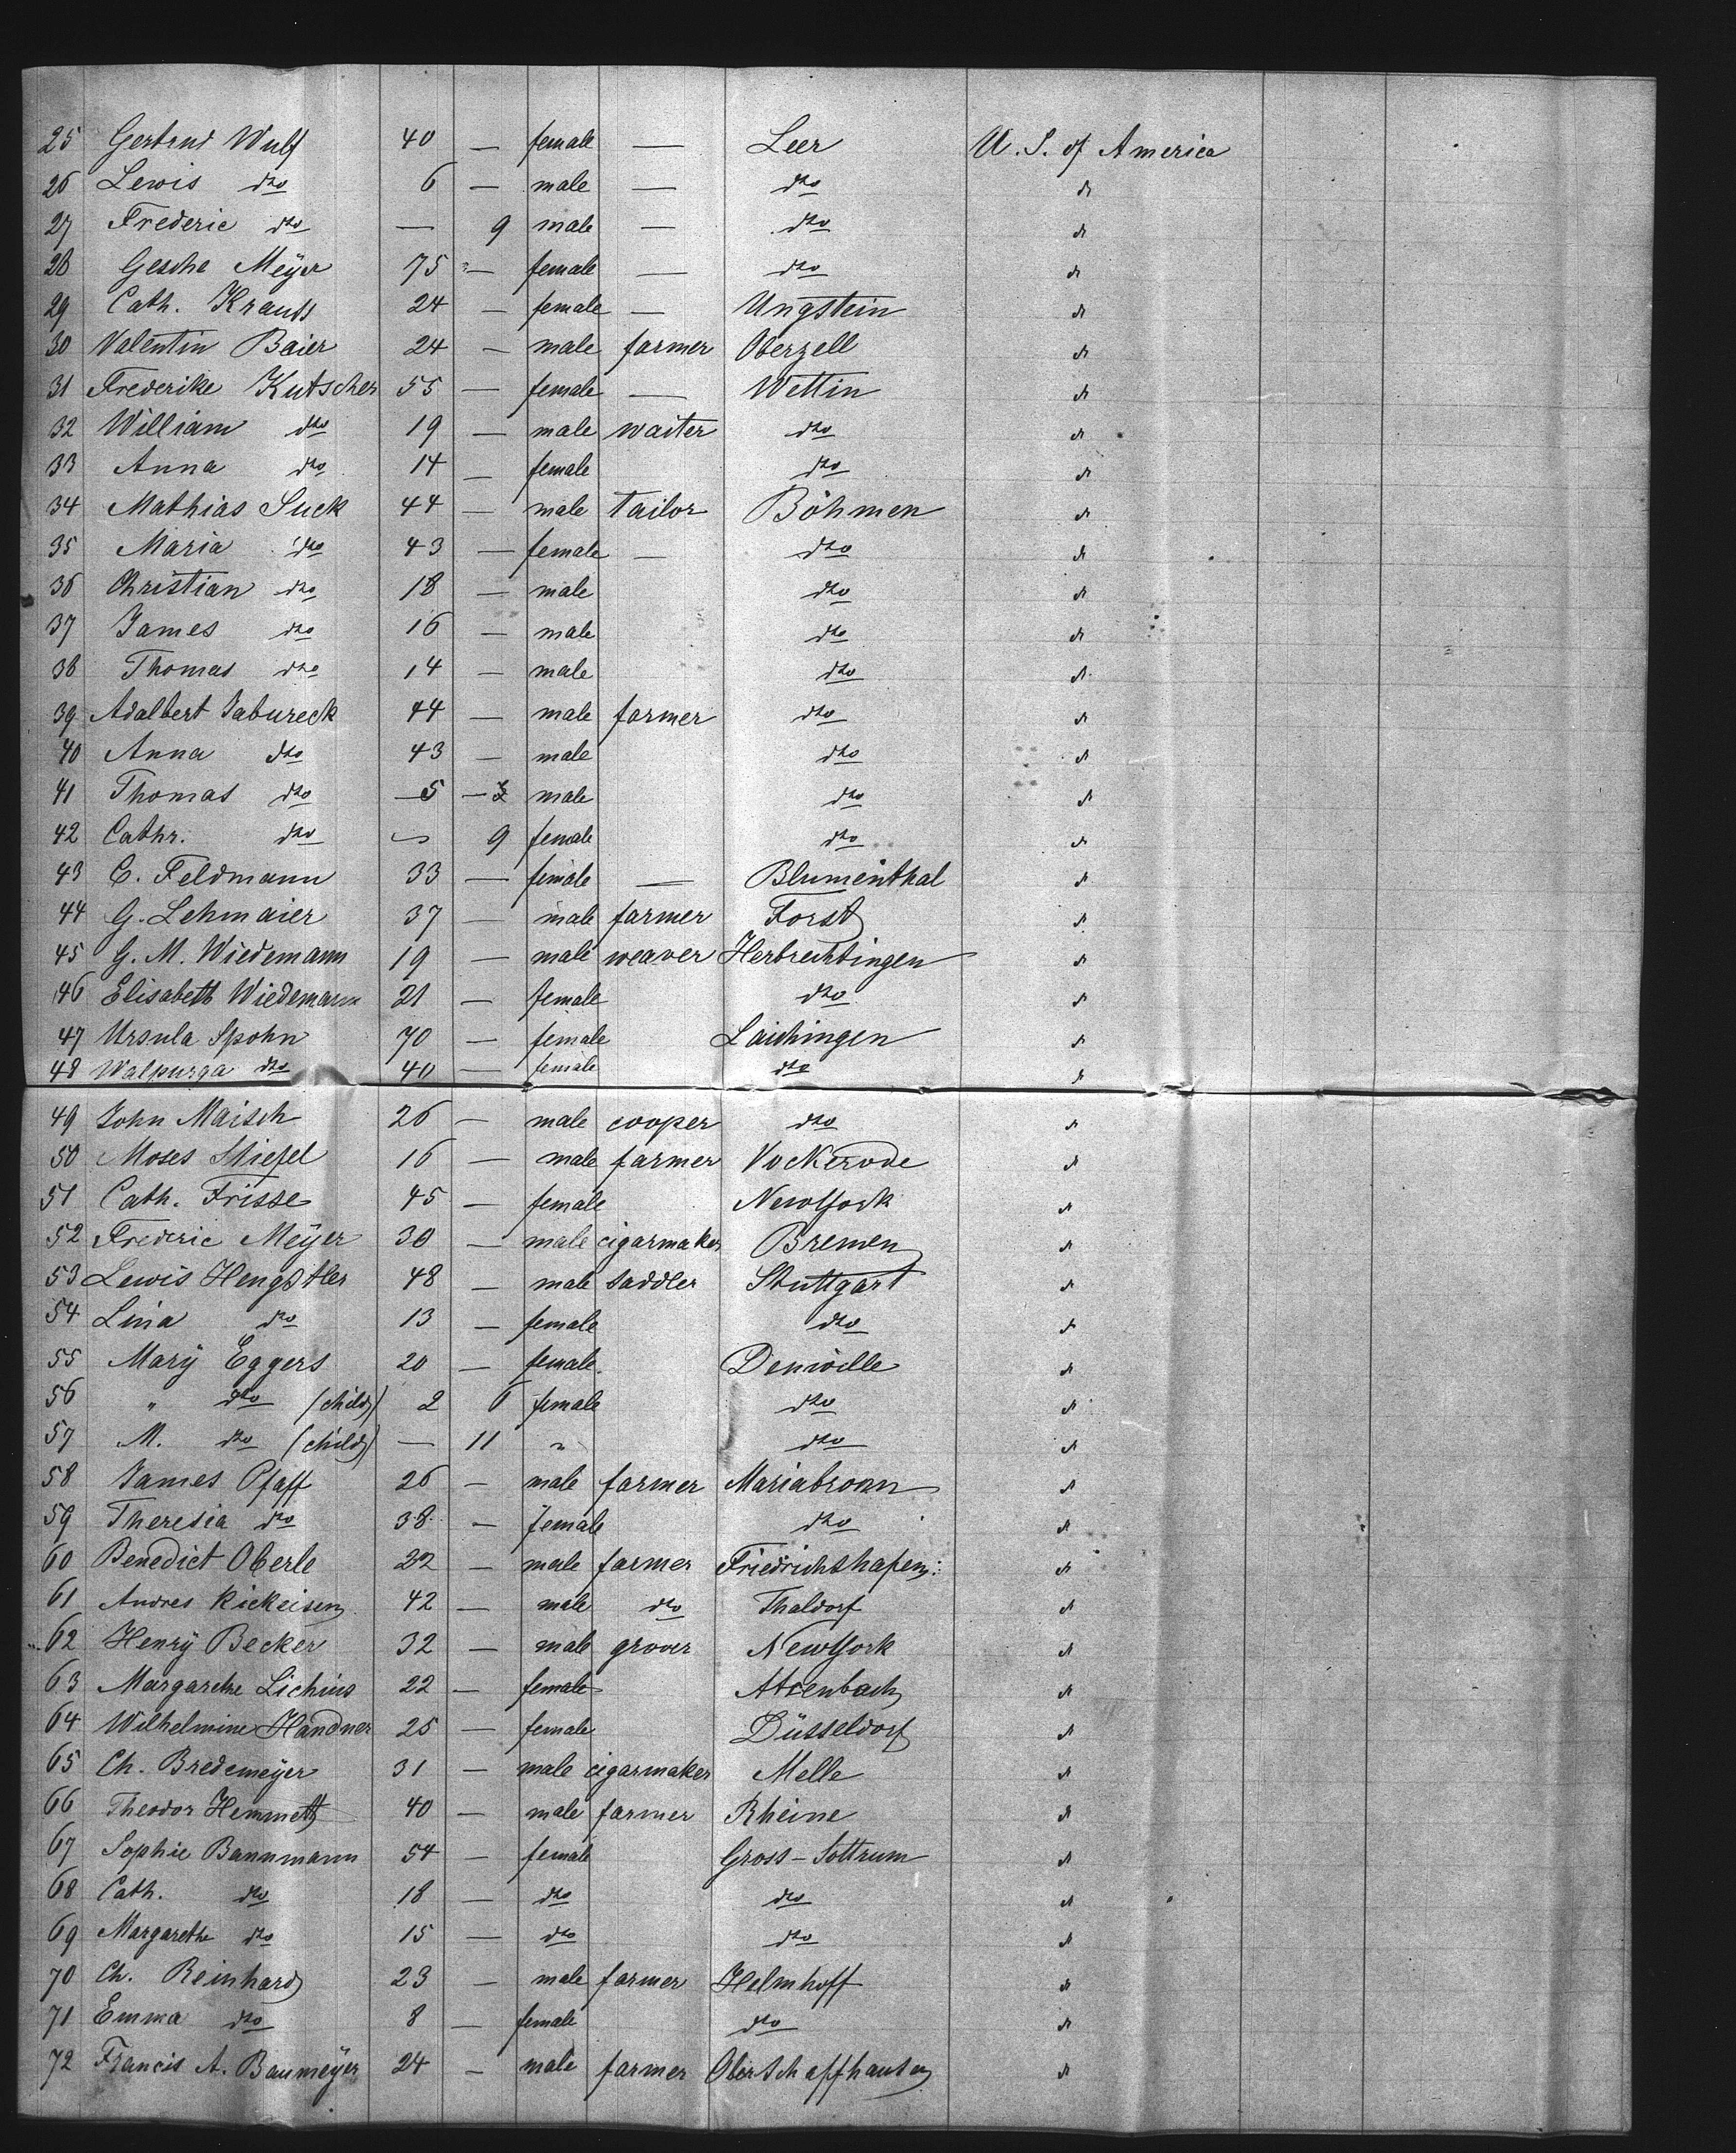 25 Gertrud Wulf 40 — female — Leer U. S. of America
26 Lewis dto 6 — male — dto do
27 Frederic dto — 9 male — dto do
28 Gesche Meÿer 75 — female — dto do
29 Cath. Krauss 24 — female — Ungstein do
30 Valentin Baier 24 — male farmer Oberzell do
31 Frederike Kutscher 55 — female — Wettin do
32 William dto 19 — male waiter dto do
33 Anna dto 14 — female dto do
34 Mathias Suck 44 — male tailor Böhmen do
35 Maria dto 43 — female — dto do
36 Christian dto 18 — male dto do
37 James dto 16 — male dto do
38 Thomas dto 14 — male dto do
39 Adalbert Jabureck 44 — male farmer dto do
40 Anna dto 43 — male dto do
41 Thomas dto 5 — male dto do
42 Cathr. dto — 9 female dto do
43 C. Feldmann 33 — female — Blumenthal do
44 G. Lehmaier 37 — male farmer Forst do
45 G. M. Wiedemann 19 — male weaver Herbrechtingen do
46 Elisabeth Wiedemann 21 — female dto do
47 Ursula Spohn 70 — female Laichingen do
48 Walpurga dto 40 — female dto do
49 John Maisch 26 — male cooper dto do
50 Moses Stiefel 16 — male farmer Vockerode do
51 Cath. Frisse 45 — female NewYork do
52 Frederic Meÿer 30 — male cigarmaker Bremen do
53 Lewis Hengstler 48 — male saddler Stuttgart do
54 Lina dto 13 — female dto do
55 Marÿ Eggers 20 — female Denville do
56 " dto (child) 2 6 female dto do
57 M. dto (child) — 11 " dto do
58 James Pfaff 26 — male farmer Mariabronn do
59 Theresia dto 38 — female dto do
60 Benedict Oberle 22 — male farmer Friedrichshafen do
61 Andres Rickeisen 42 — male dto Thaldorf do
62 Henrÿ Becker 32 — male grover NewYork do
63 Margarethe Lichius 22 — female do
64 Wilhelmine Handner 25 — female Düsseldorf do
65 Ch. Bredemeÿer 31 — male cigarmaker Melle do
66 Theodor Hemmett 40 — male farmer Rheine do
67 Sophie Bannmann 54 — female Gross-Sottrum do
68 Cath. dto 18 — dto dto do
69 Margarethe dto 15 — dto dto do
70 Ch. Reinhard 23 — male farmer Helmhoff do
71 Emma dto 8 — female dto do
72 Francis A. Baumeÿer 24 — male farmer Oberschaffhausen do